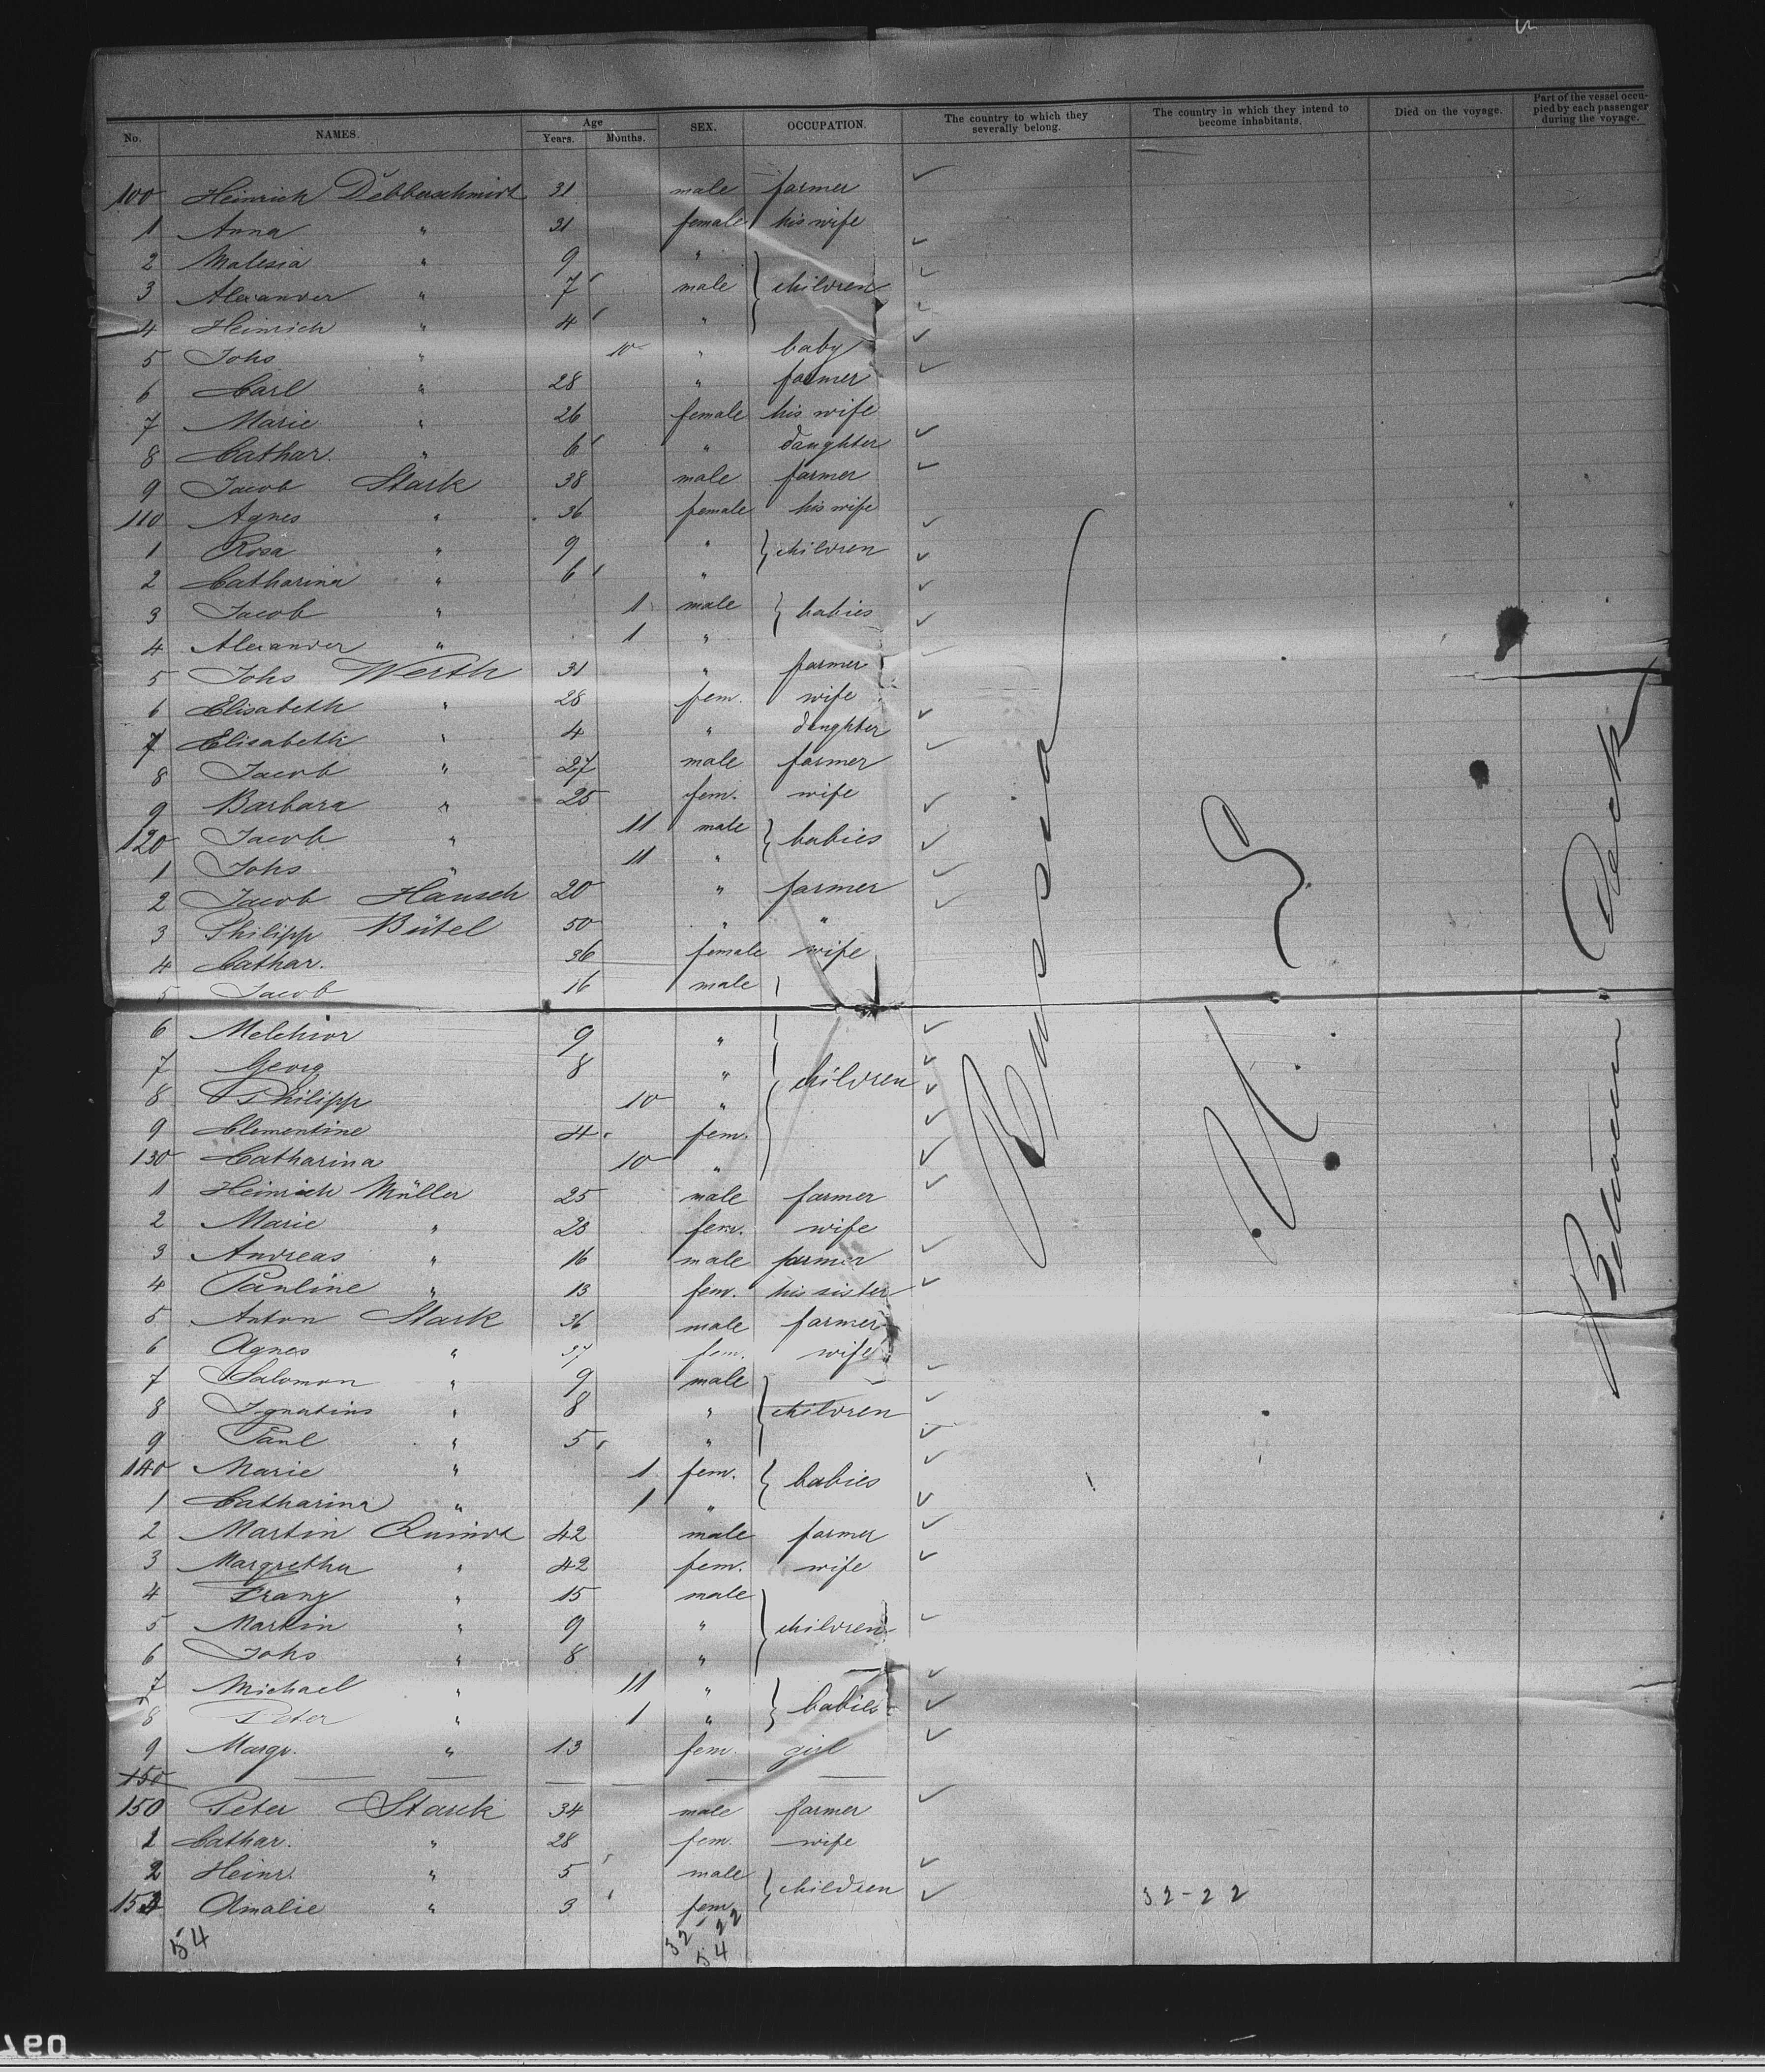 No. NAMES. Age Years. Months. SEX. OCCUPATION. The country to which they severally belong. The country in which they intend to become inhabitants. Died on the voyage. Part of the vessel occupied by each passenger during the voyage.
100 Heinrich Debberschmidt 31 male farmer
1 Anna " 31 female his wife
2 Malesia " 9 "
3 Alexander " 7 male children
4 Heinrich " 4 "
5 Johs " 10 " baby
6 Carl " 28 " farmer
7 Marie " 26 female his wife
8 Cathar. " 6 " daughter
9 Jacob Stark 38 male farmer
110 Agnes " 36 female his wife
1 Rosa " 9 " children
2 Catharina " 6 "
3 Jacob " 1 male babies
4 Alexander " 1 "
5 Johs Werth 31 " farmer
6 Elisabeth " 28 fem. wife
7 Elisabeth " 4 " daughter
8 Jacob " 27 male farmer
9 Barbara " 25 fem. wife
120 Jacob " 11 male babies
1 Johs " 11 "
2 Jacob Hansch 20 " farmer
3 Philipp Bütel 50 " "
4 Cathar. 36 female wife
5 Jacob 16 male
6 Melchior 9 "
7 Georg 8 " children
8 Philipp 10 "
9 Clementine 4 fem.
130 Catharina 10 "
1 Heinrich Müller 25 male farmer
2 Marie " 23 fem. wife
3 Andreas " 16 male farmer
4 Pauline " 13 fem. his sister
5 Anton Stark 36 male farmer
6 Agnes " 37 fem. wife
7 Salomon " 9 male
8 Ignatius " 8 " children
9 Paul " 5 "
140 Marie " 1 fem. babies
1 Catharina " 1 "
2 Martin Quindt 42 male farmer
3 Margretha " 42 fem. wife
4 Franz " 15 male
5 Martin " 9 " children
6 Johs " 8 "
7 Michael " 11 " babies
8 Peter " 1 "
9 Margr. " 13 fem. girl
150
150 Peter Stark 34 male farmer
1 Cathar. " 28 fem. wife
2 Heinr. " 5 male children
153 Amalie " 3 fem.
Russia
U. S.
Between Deck
32-22
54
32 22
54